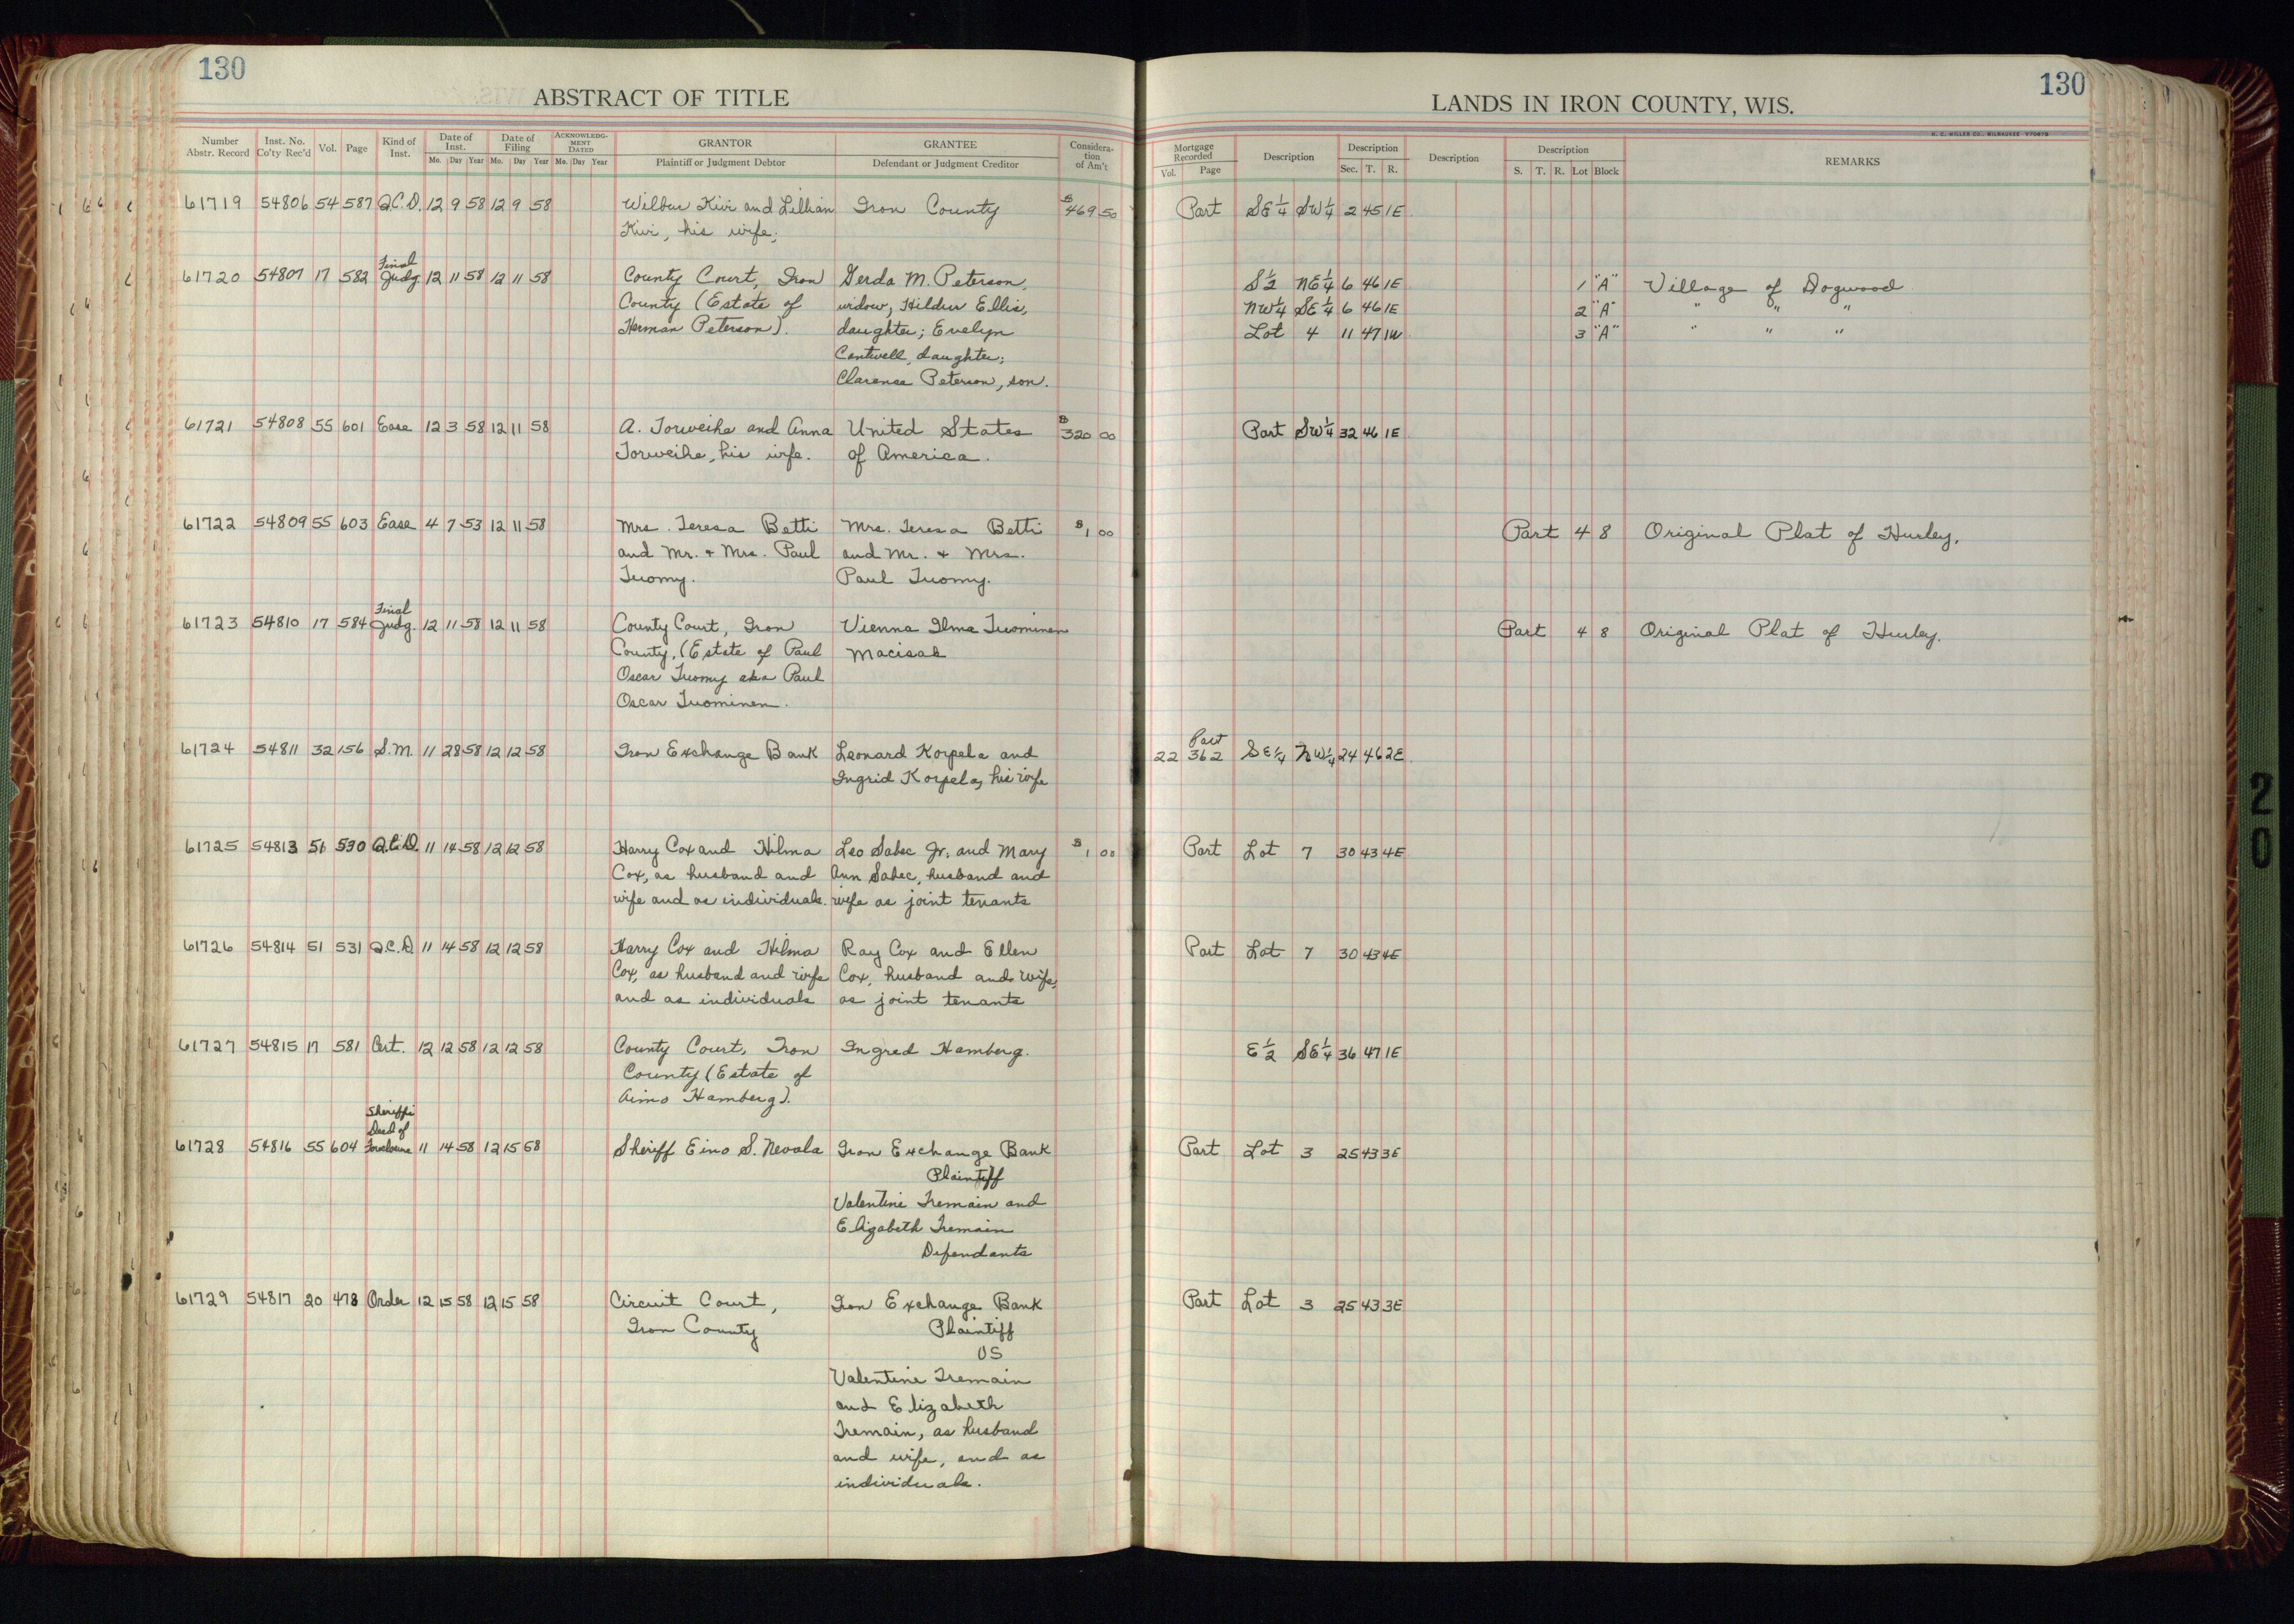 130
ABSTRACT OF TITLE
Number Abstr. Record | Inst. No. Co'ty Rec'd | Vol. | Page | Kind of Inst. | Date of Inst. Mo. Day Year | Date of Filing Mo. Day Year | ACKNOWLEDGMENT DATED Mo. Day Year | GRANTOR Plaintiff or Judgment Debtor | GRANTEE Defendant or Judgment Creditor | Consideration of Am't
61719 54806 54 587 Q.C.D. 12 9 58 12 9 58 Wilbur Kivi and Lillian Iron County $469 50
Kivi, his wife;
Final
61720 54807 17 582 Judg 12 11 58 12 11 58 County Court, Iron Gerda M. Peterson,
County (Estate of widow; Hildur Ellis,
Herman Peterson). daughter; Evelyn
Cantwell, daughter;
Clarence Peterson, son.
61721 54808 55 601 Ease 12 3 58 12 11 58 A. Torweihe and Anna United States $320 00
Torweihe, his wife. of America.
61722 54809 55 603 Ease 4 7 53 12 11 58 Mrs. Teresa Betti Mrs. Teresa Betti $1 00
and Mr. + Mrs. Paul and Mr. + Mrs.
Tuomy. Paul Tuomy.
Final
61723 54810 17 584 Judg. 12 11 58 12 11 58 County Court, Iron Vienna Ilma Tuominen
County, (Estate of Paul Macisak
Oscar Tuomy aka Paul
Oscar Tuominen.
61724 54811 32 156 S.M. 11 28 58 12 12 58 Iron Exchange Bank Leonard Korpela and
Ingrid Korpela, his wife
61725 54813 51 530 Q.C.D. 11 14 58 12 12 58 Harry Cox and Hilma Leo Sabec Jr. and Mary $1 00
Cox, as husband and Ann Sabec, husband and
wife and as individuals. wife as joint tenants
61726 54814 51 531 Q.C.D. 11 14 58 12 12 58 Harry Cox and Hilma Ray Cox and Ellen
Cox, as husband and wife Cox, husband and wife,
and as individuals as joint tenants
61727 54815 17 581 Cert. 12 12 58 12 12 58 County Court, Iron Ingred Hamberg.
County (Estate of
Aimo Hamberg).
Sheriffs
Deed of
61728 54816 55 604 Foreclosure 11 14 58 12 15 58 Sheriff Eino S. Nevala Iron Exchange Bank
Plaintiff
Valentine Tremain and
Elizabeth Tremain
Defendants
61729 54817 20 478 Order 12 15 58 12 15 58 Circuit Court, Iron Exchange Bank
Iron County Plaintiff
VS
Valentine Tremain
and Elizabeth
Tremain, as husband
and wife, and as
individuals.
130
LANDS IN IRON COUNTY, WIS.
H. C. MILLER CO., MILWAUKEE
Mortgage Recorded Vol. Page | Description | Description Sec. T. R. | Description | Description S. T. R. Lot Block | REMARKS
Part SE 1/4 SW 1/4 2 45 1E
S 1/2 NE 1/4 6 46 1E 1 "A" Village of Dogwood
NW 1/4 SE 1/4 6 46 1E 2 "A" " " "
Lot 4 11 47 1W 3 "A" " " "
Part SW 1/4 32 46 1E
Part 4 8 Original Plat of Hurley.
Part 4 8 Original Plat of Hurley.
Part
22 362 SE 1/4 NW 1/4 24 46 2E
Part Lot 7 30 43 4E
Part Lot 7 30 43 4E
E 1/2 SE 1/4 36 47 1E
Part Lot 3 25 43 3E
Part Lot 3 25 43 3E
20